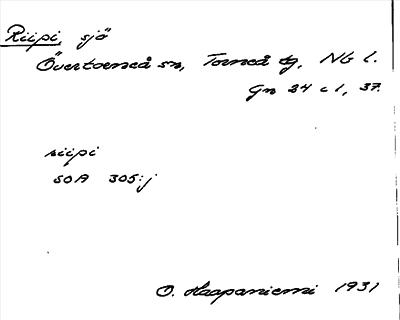 Riipi, sjö
Övertorneå sn, Torneå tg, NG l.
Gn 24 c 1, 37.
riipi
SOA 305:j
O. Haapaniemi 1931